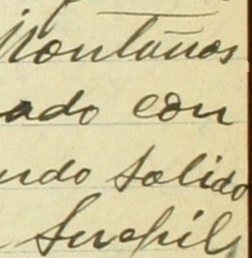 Montañas
ado con
ndo salido